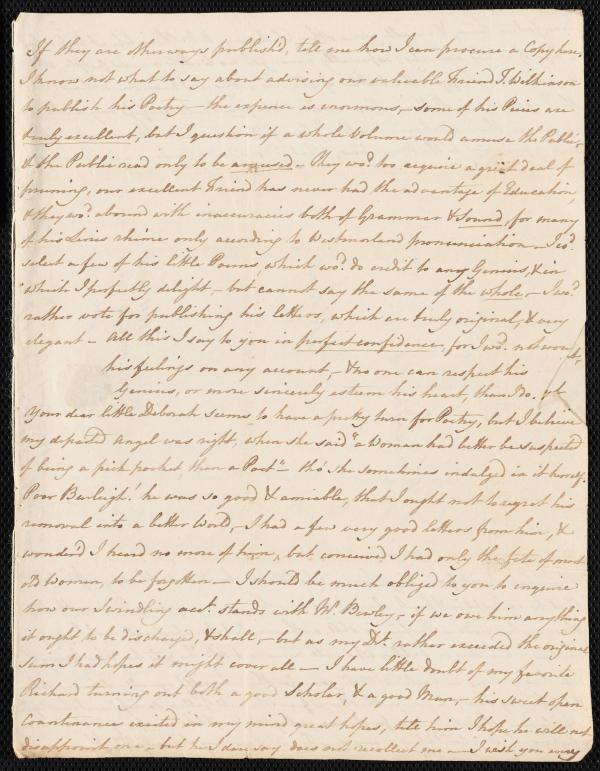 If they are otherways publish'd, tell me how I can procure a Copy here,
I know not what to say about advising our valuable Friend T. Wilkinson
to publish his Poetry – the expence is enormous, – some of his Peices are
truly excellent, but I question if a whole Volume would amuse the Public,
& the Public read only to be amused – they wod. too require a great deal of
pruning, our excellent Friend has never had the advantage of Education,
& they wod. abound with inaccuracies both of Grammar & Sound, for many
of his Lines rhime only according to Westmorland pronunciation – I wod.
select a few of his little Poems, which wod. do credit to any Genius, & in
which I perfectly delight, – but cannot say the same of the whole, – I wod.
rather vote for publishing his letters, which are truly original, & very
elegant – All this I say to you in perfect confidence, for I wod. not wound
his feelings on any account, – & no one can respect his
Genius, or more sincerely esteem his heart, than I do.
Your dear little Deborah seems to have a pretty turn for Poetry, but I believe
my departed Angel was right, when she said "a Woman had better be suspected
of being a pick pocket than a Poet" – tho' she sometimes indulged in it herself.
Poor Burleigh! he was so good & amiable, that I ought not to regret his
removal into a better World, – I had a few very good letters from him, &
wonder'd I heard no more of him, but conceived I had only the fate of most
old Women, to be forgotten – I should be much obliged to you to enquire
how our Swindling acct. stands with Wm. Bewley, – if we owe him anything
it ought to be discharged, & shall, – but as my Dt. rather exceeded the original
sum I had hopes it might cover all – I have little doubt of my favorite
Richard turning out both a good Scholar, & a good Man, – his sweet open
Countenance excited in my mind great hopes, tell him I hope he will not
disappoint me – but he I dare say does not recollect me – I wish you every